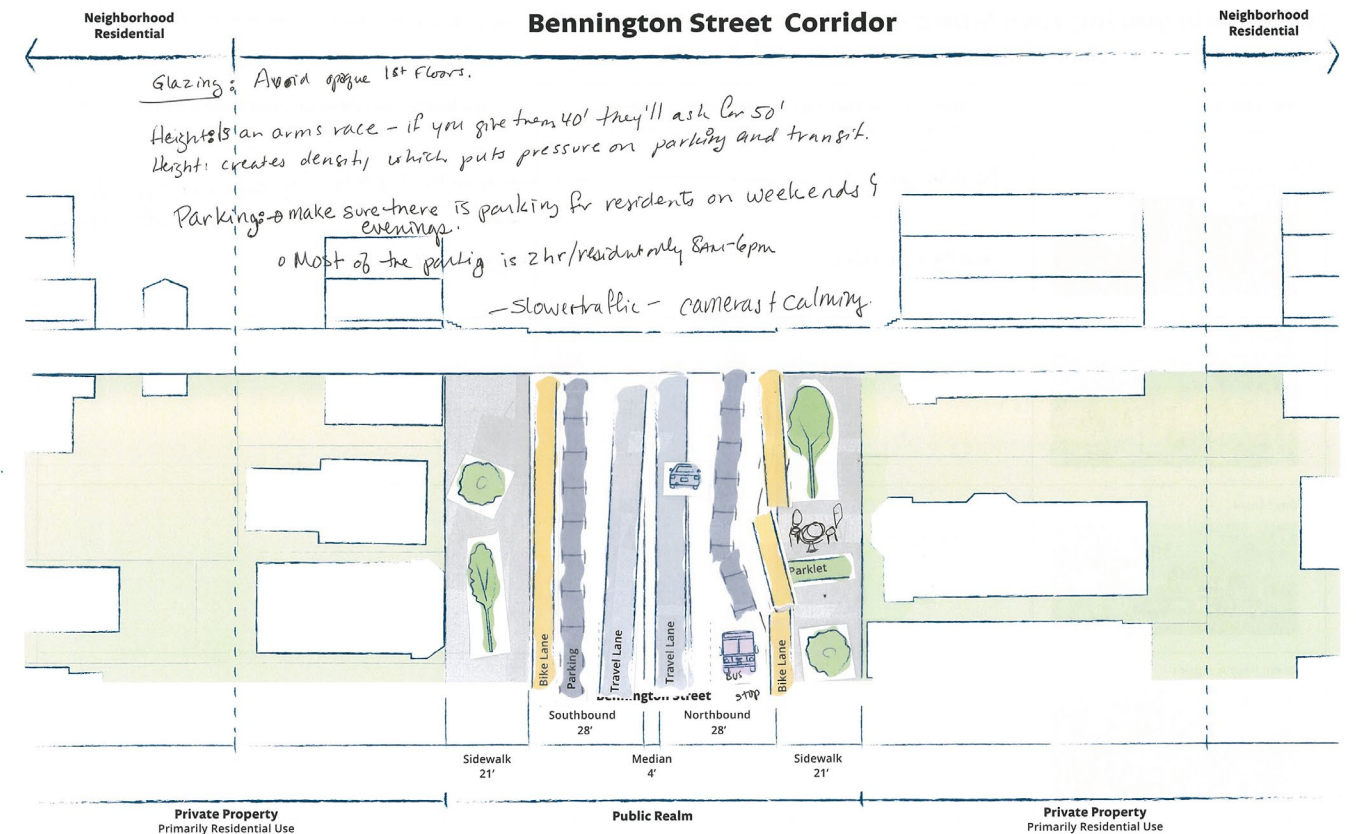 Neighborhood
Residential
Bennington Street Corridor
Neighborhood
Residential
Glazing: Avoid opaque 1st Floors.
Height: Is an arms race - if you give them 40' they'll ask for 50'
Height: creates density, which puts pressure on parking and transit.
Parking: o make sure there is parking for residents on weekends &
evenings.
o Most of the parkig is 2hr/resident only 8AM-6pm
- Slower traffic - cameras + calming.
C
Parklet
C
Bike Lane
Parking
Travel Lane
Travel Lane
Bus
stop
Bike Lane
Bennington Street
Southbound
28'
Northbound
28'
Sidewalk
21'
Median
4'
Sidewalk
21'
Private Property
Primarily Residential Use
Public Realm
Private Property
Primarily Residential Use